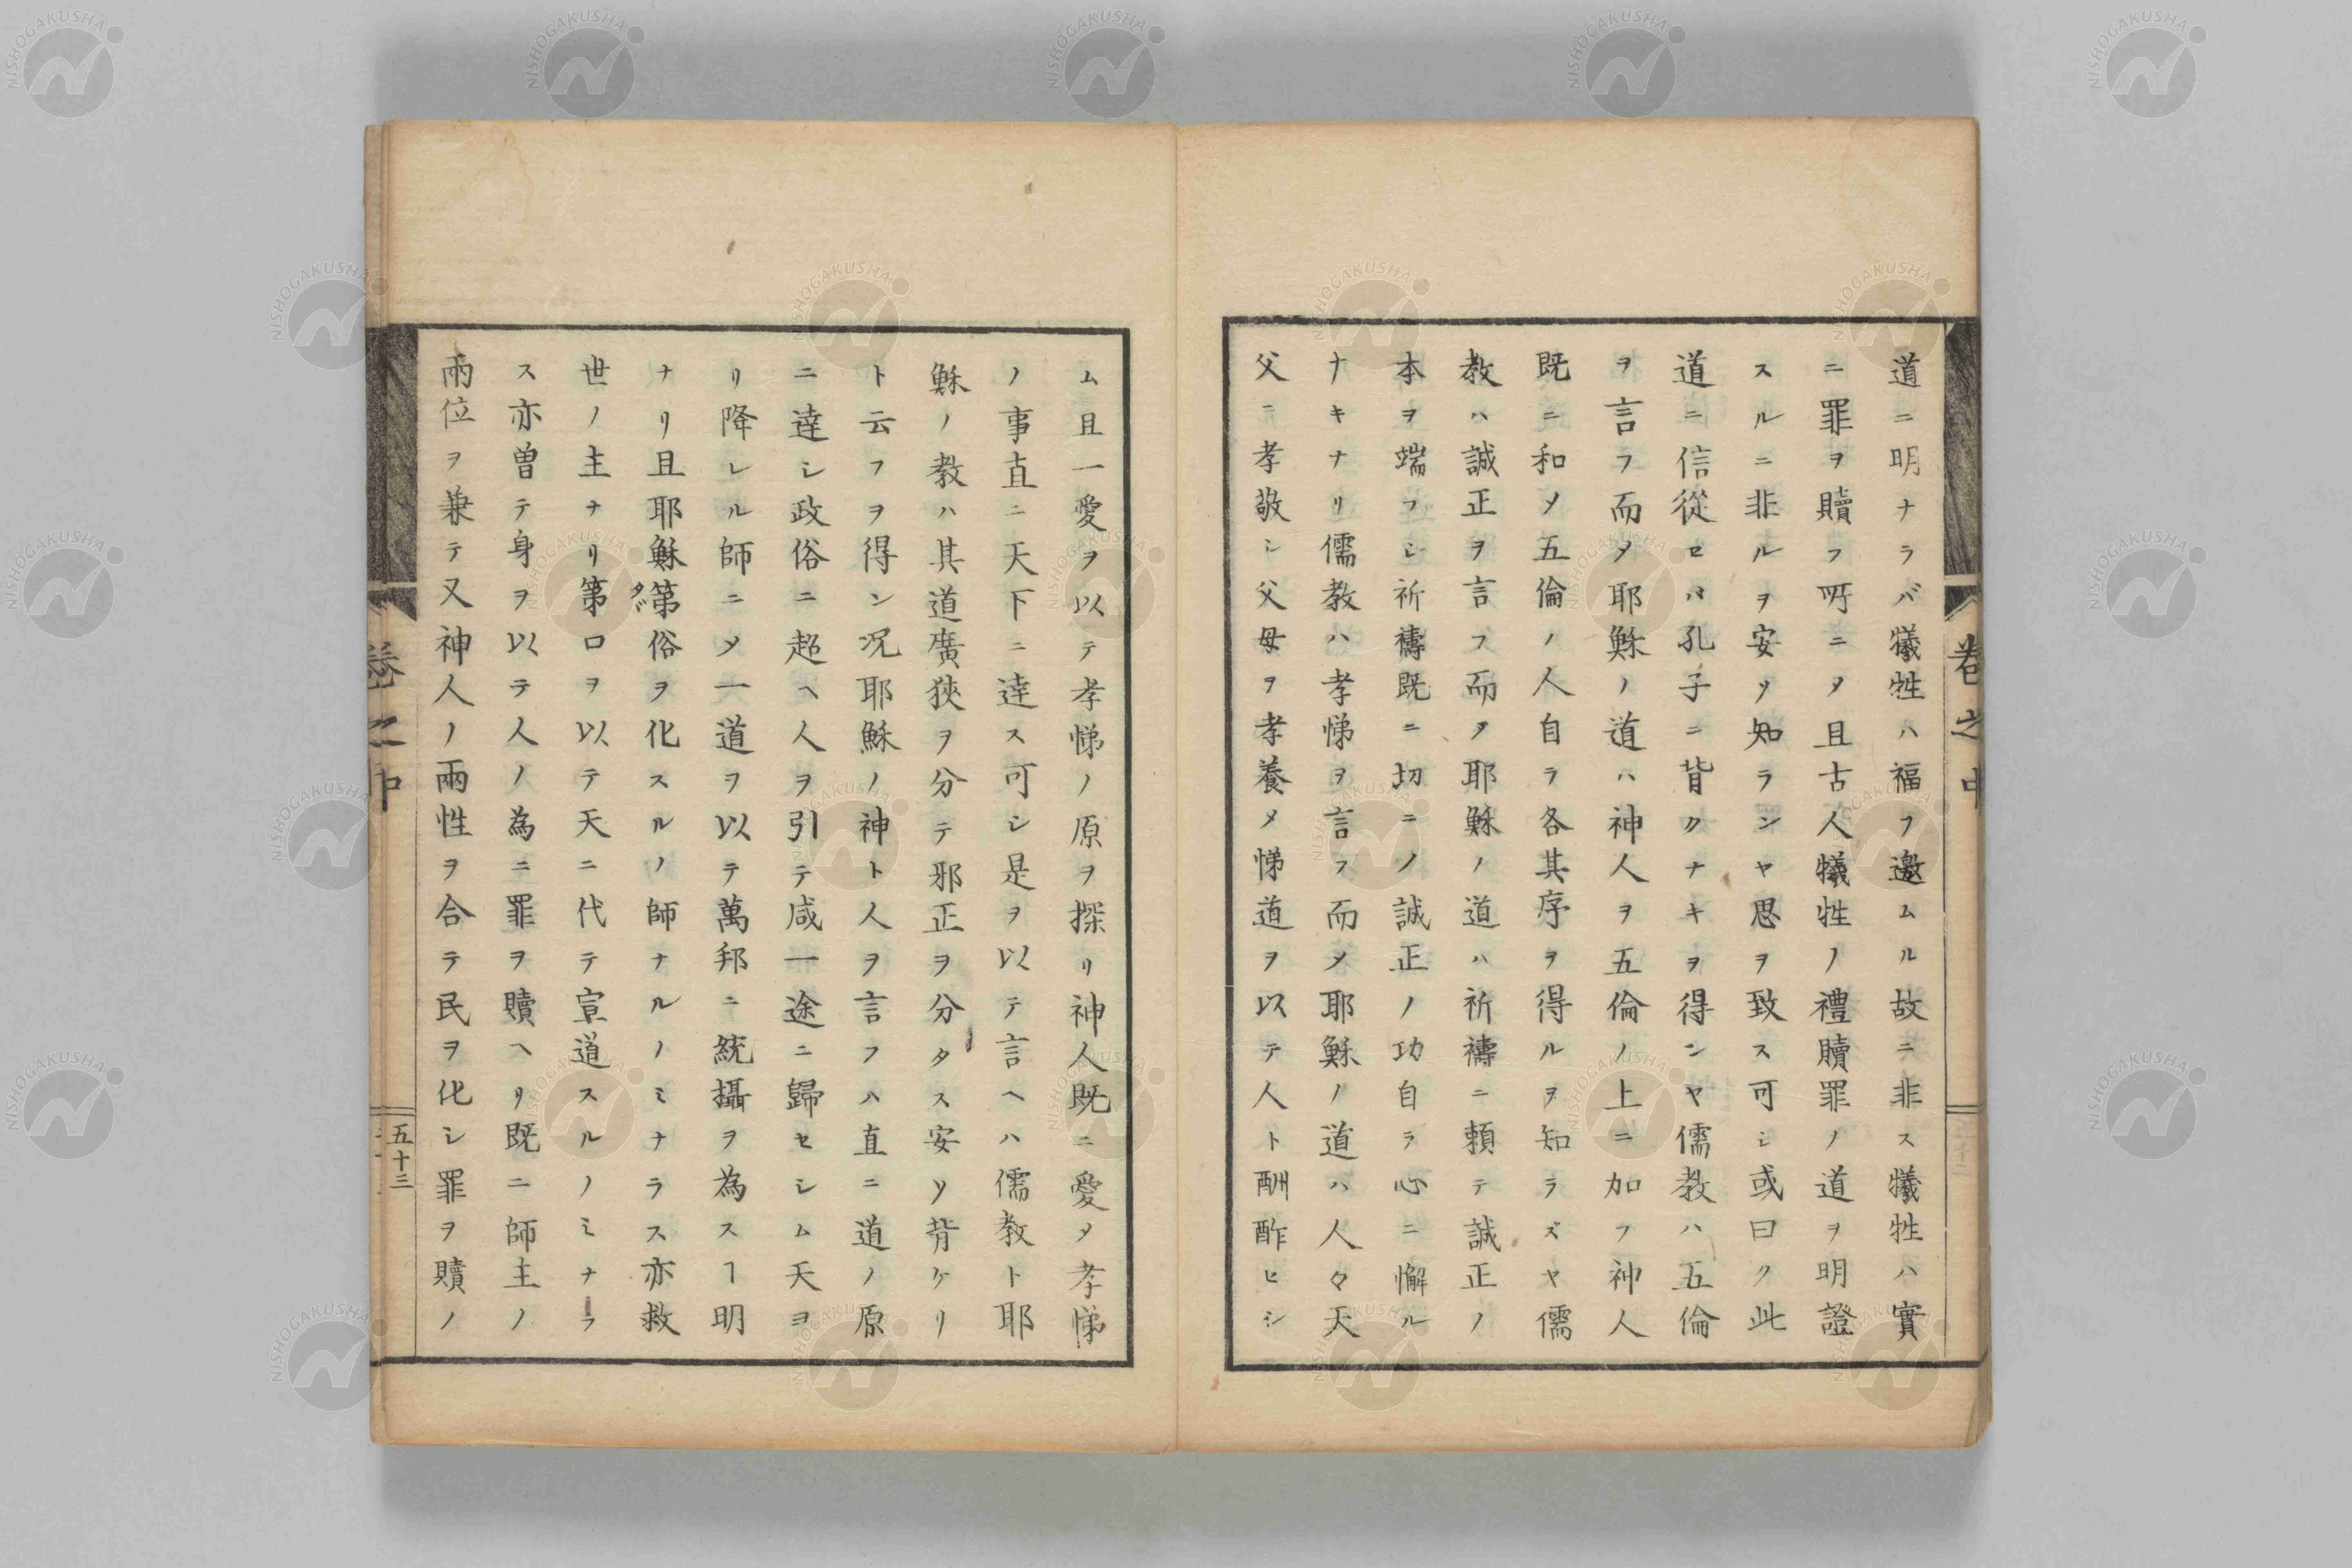 道ニ明ナラバ犠牲ハ福フ邀ムル故ニ非ス犠牲ハ實
ニ罪ヲ贖フ所ニメ且古人犠牲ノ禮贖罪ノ道ヲ明證
スルニ非ルヲ安ソ知ランヤ思ヲ致ス可シ或曰ク此
道ニ信從セハ孔子ニ背クナキヲ得ンヤ儒教ハ五倫
ヲ言フ而メ耶穌ノ道ハ神人ヲ五倫ノ上ニ加フ神人
既ニ和メ五倫ノ人自ラ各其序ヲ得ルヲ知ラズヤ儒
教ハ誠正ヲ言フ而メ耶穌ノ道ハ祈禱ニ頼テ誠正ノ
本ヲ端フシ祈禱既ニ切ニノ誠正ノ功自ラ心ニ懈ル
ナキナリ儒教ハ孝悌ヲ言フ而メ耶穌ノ道ハ人々天
父ニ孝敬シ父母ヲ孝養メ悌道ヲ以テ人ト酬酢ヒシ
ム且一愛ヲ以テ孝悌ノ原ヲ探リ神人既ニ愛メ孝悌
ノ事直ニ天下ニ達ス可シ是ヲ以テ言ヘハ儒教ト耶
穌ノ教ハ其道廣狹ヲ分テ邪正ヲ分タス安ソ背ケリ
ト云フヲ得ン况耶穌ノ神ト人ヲ言フハ直ニ道ノ原
ニ達シ政俗ニ超ヘ人ヲ引テ咸一途ニ歸セシム天ヲ
リ降レル師ニメ一道ヲ以テ萬邦ニ統攝ヲ為スヿ明
ナリ且耶穌第俗ヲ化スルノ師ナルノミナラス亦救
タヾ
世ノ主ナリ第口ヲ以テ天ニ代テ宣道スルノミナラ
ス亦曽テ身ヲ以テ人ノ為ニ罪ヲ贖ヘリ既ニ師主ノ
兩位ヲ兼テ又神人ノ兩性ヲ合テ民ヲ化シ罪ヲ贖ノ
卷之中
五十三